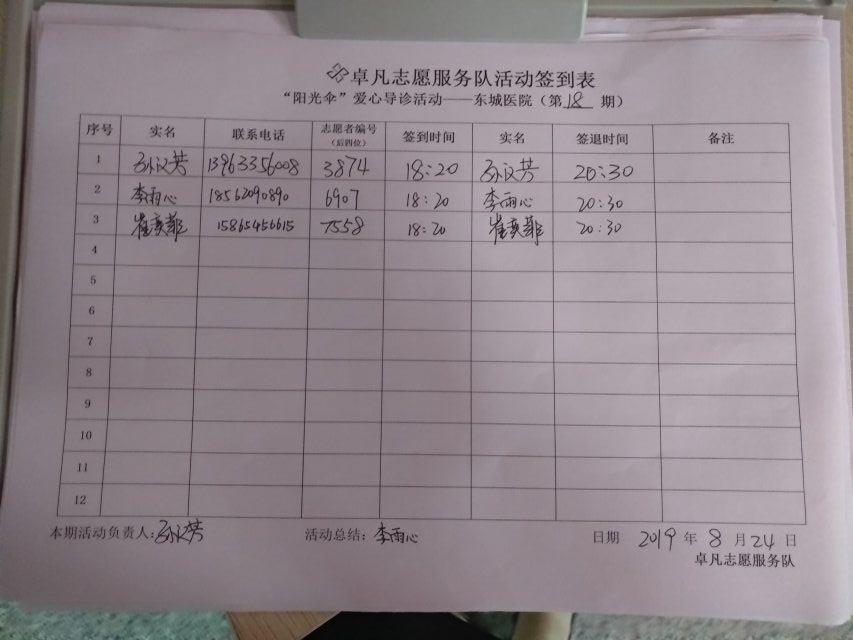 卓凡志愿服务队活动签到表
“阳光伞”爱心导诊活动——东城医院（第 18 期）
序号 实名 联系电话 志愿者编号（后四位） 签到时间 实名 签退时间 备注
1 孙汉芳 13963356008 3874 18:20 孙汉芳 20:30
2 李雨心 18562090890 6907 18:20 李雨心 20:30
3 崔英菲 15865456615 7558 18:20 崔英菲 20:30
4
5
6
7
8
9
10
11
12
本期活动负责人:孙汉芳 活动总结:李雨心 日期 2019 年 8 月 24 日
卓凡志愿服务队